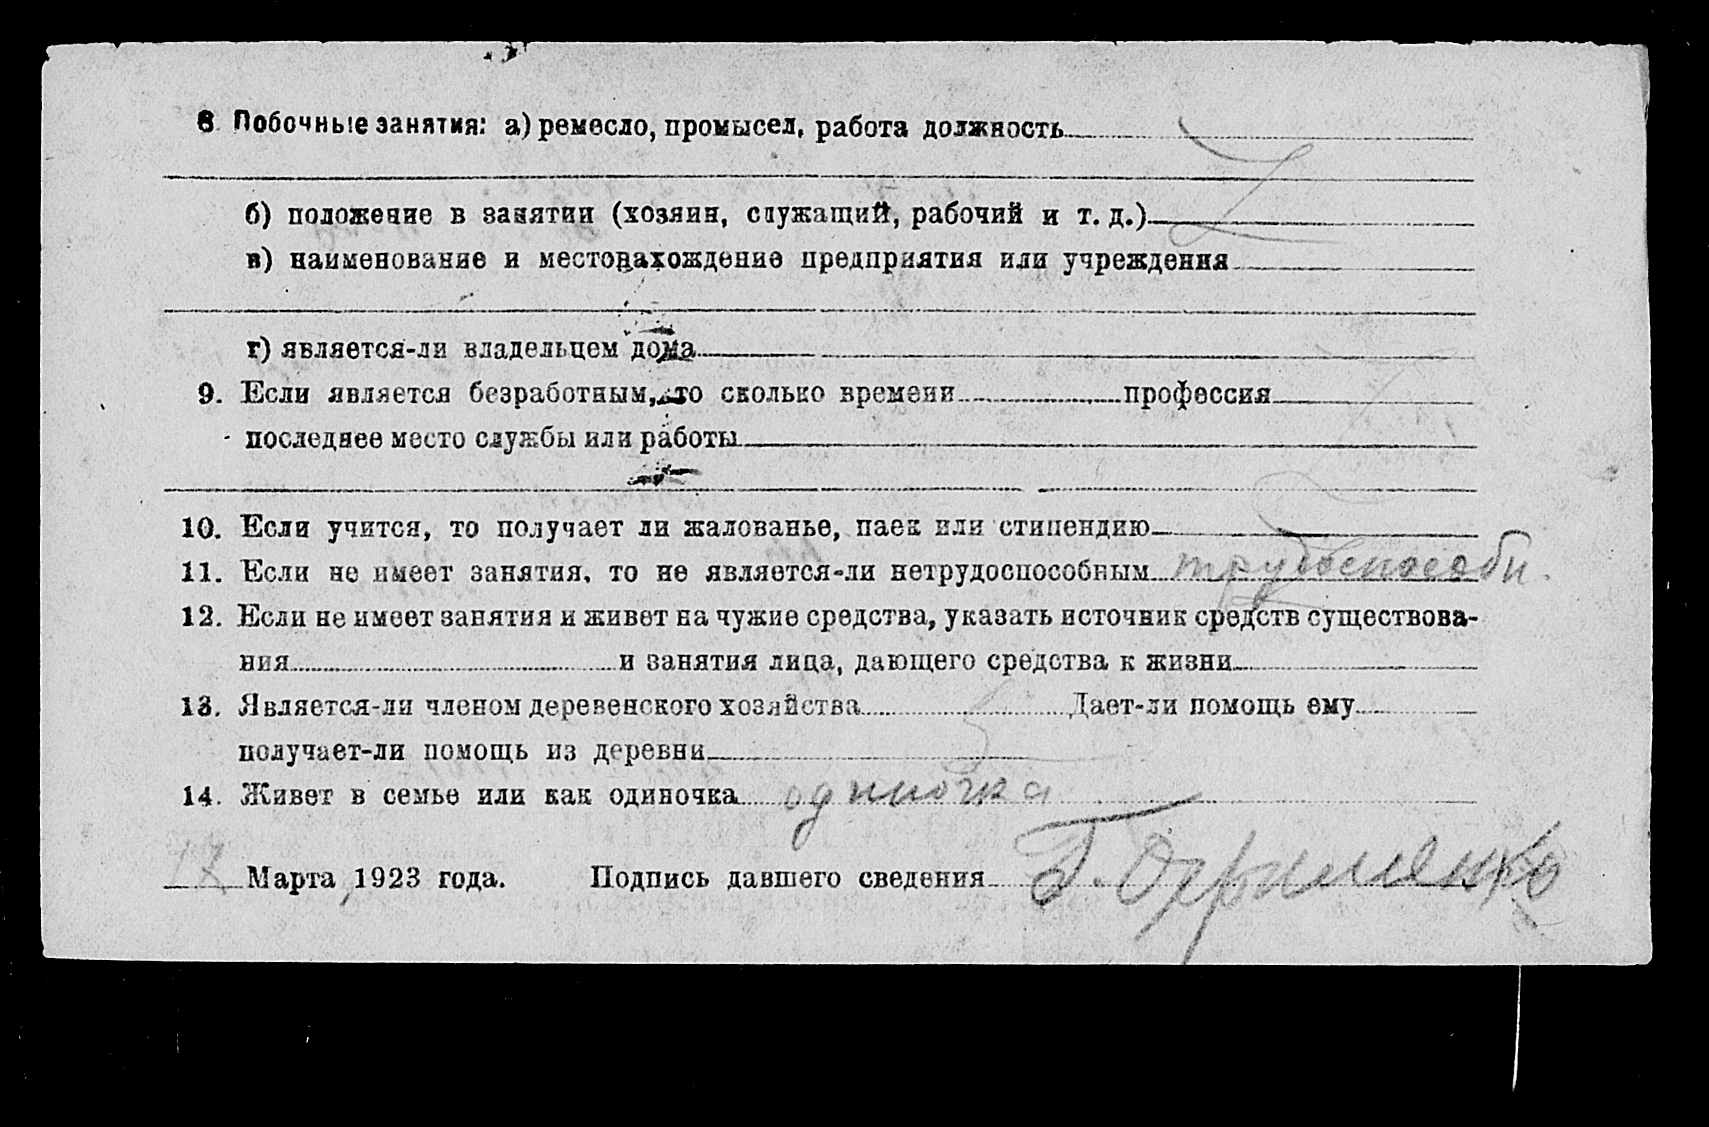 8 Побочные занятия: а) ремесло, промысел, работа должность
б) положение в занятии (хозяин, служащий, рабочий и т. д.)
в) наименование и местонахождение предприятия или учреждения
г) является-ли владельцем дома
9. Если является безработным, то сколько времени профессия
последнее место службы или работы
10. Если учится, то получает ли жалованье, паек или стипендию
11. Если не имеет занятия, то не является-ли нетрудоспособным трудоспособн.
12. Если не имеет занятия и живет на чужие средства, указать источник средств существова-
ния и занятия лица, дающего средства к жизни
13. Является-ли членом деревенского хозяйства Дает-ли помощь ему
получает-ли помощь из деревни
14. Живет в семье или как одиночка одиночка
17 Марта 1923 года. Подпись давшего сведения